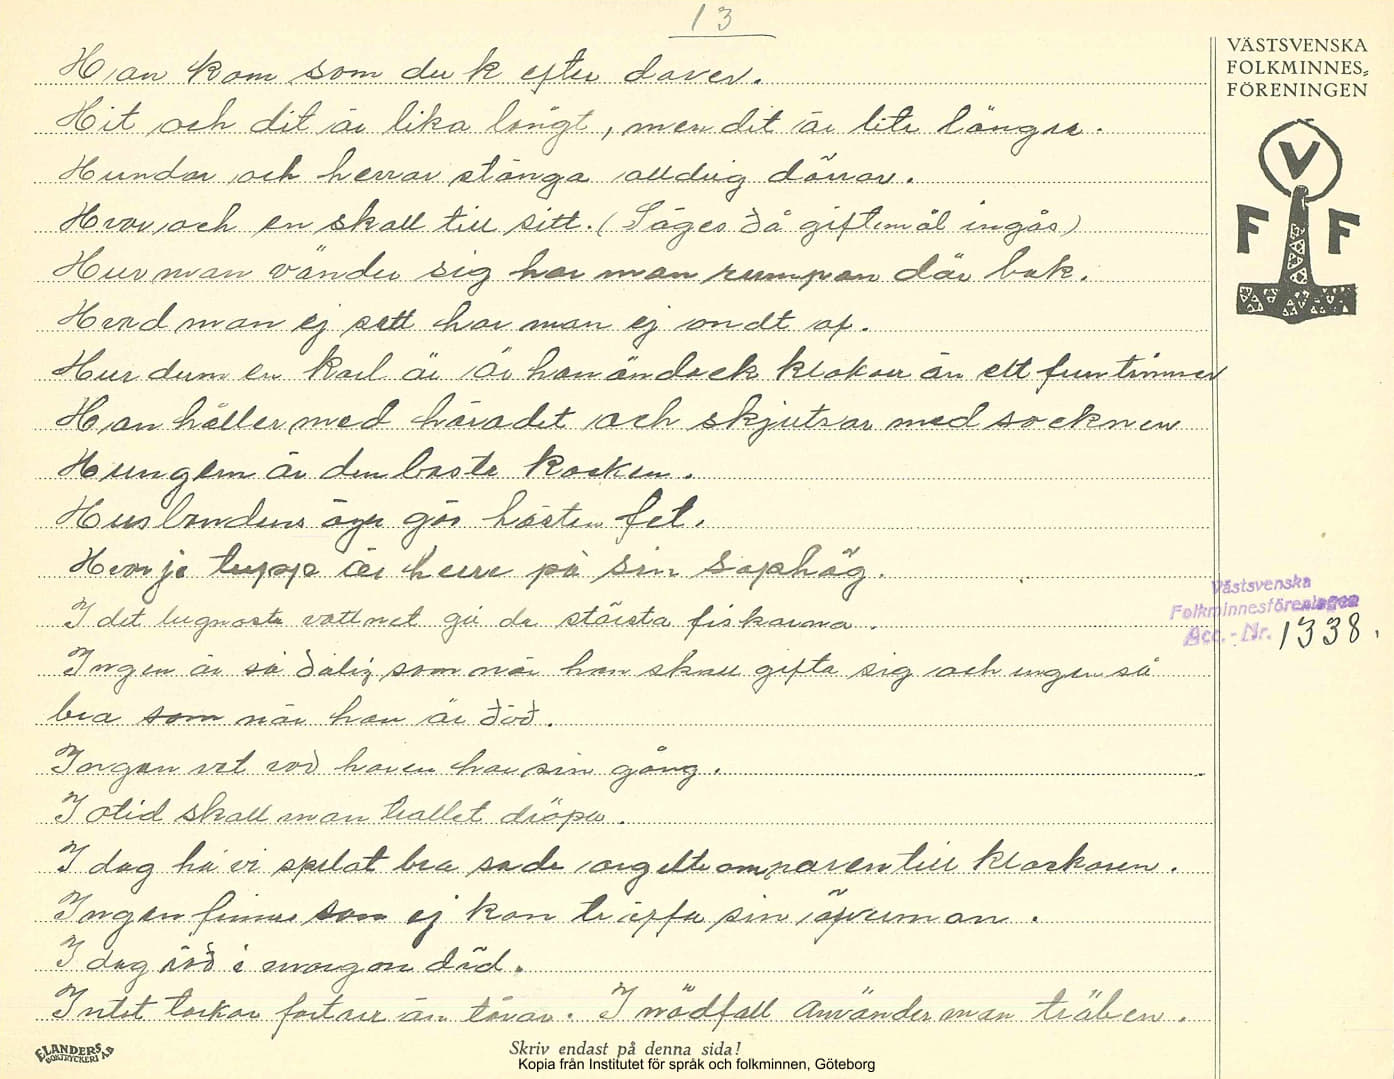 13
VÄSTSVENSKA
FOLKMINNES-
FÖRENINGEN
V
F F
Han kom som du k efter daven.
Hit och dit är lika långt, men dit är lite längre.
Hundar och herrar stänga alldrig dörrar.
Hvar och en skall till sitt. (Säges då giftermål ingås)
Hur man vänder sig har man rumpan där bak.
Hvad man ej sett har man ej ondt af.
Hur dum en karl är är han ändock klokare än ett fruntimmer
Han håller med häradet och skjutsar med socknen
Hungern är den basta kocken.
Husbondens öga gör hästen fet.
Hvarje tupp är herre på sin sophög.
I det lugnaste vattnet gå de största fiskarna.
Ingen är så dålig som när han skall gifta sig och ingen så
bra som när han är död.
Ingen vet vad haren har sin gång.
I otid skall man trallet dräpa.
I dag ha vi spelat bra sade orgeltramparen till klockaren.
Ingen finnes som ej kan träffa sin öfverman.
I dag röd i morgon död.
Intet torkar fortare än tårar. I nödfall använder man träben.
Västsvenska
Folkminnesföreningen
Acc. - Nr. 1338.
ELANDERS
BOKTRYCKERI AB
Skriv endast på denna sida!
Kopia från Institutet för språk och folkminnen, Göteborg